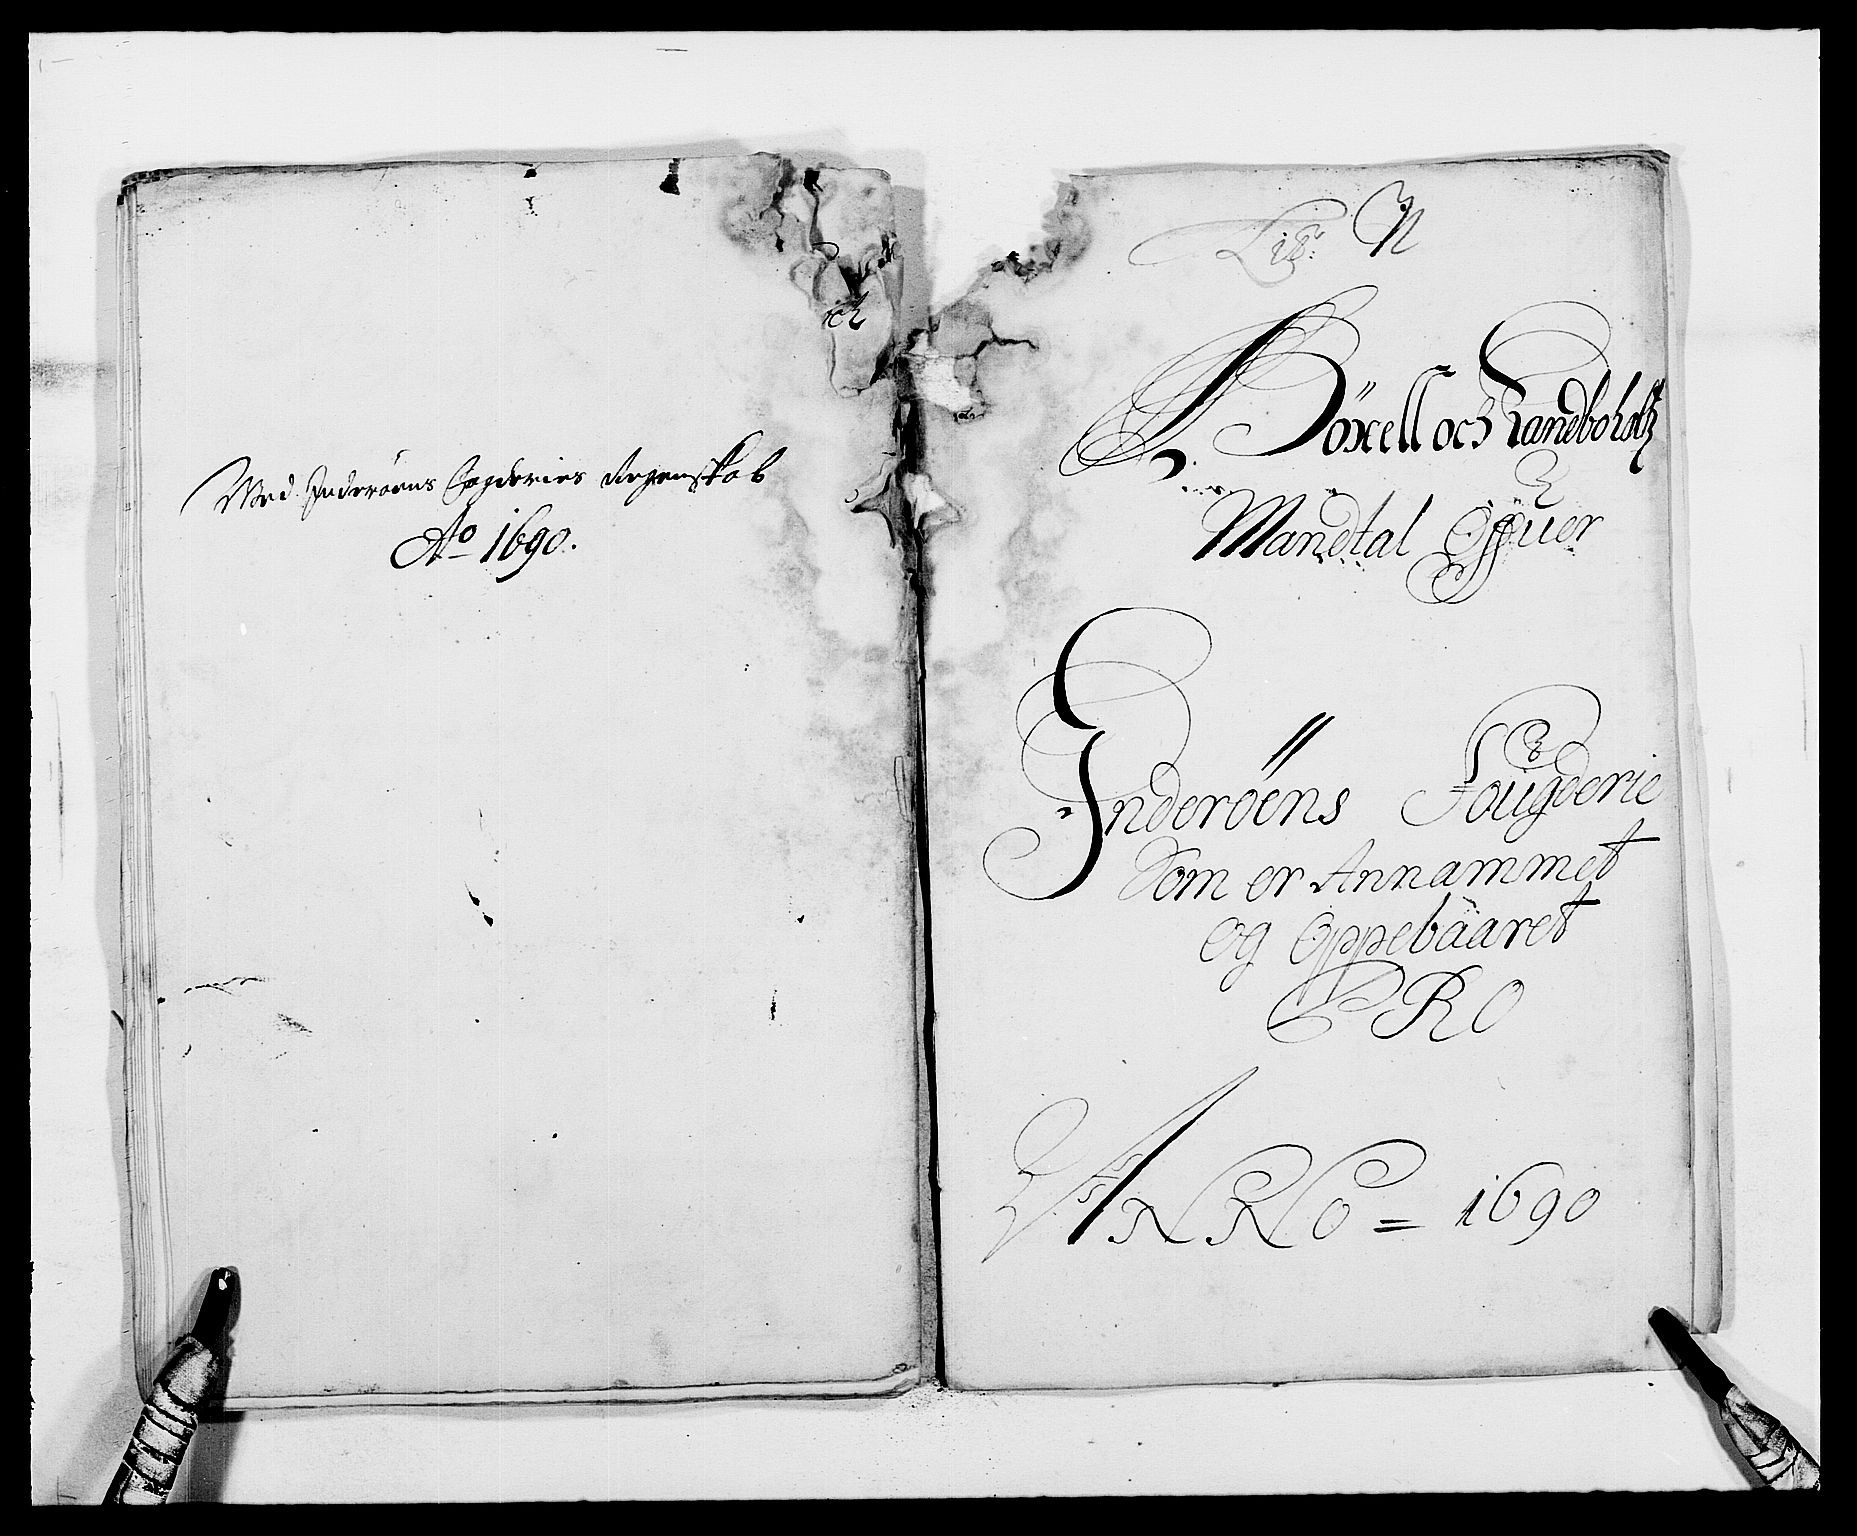 Med Inderøens Fogderies Regenskab
Ao 1690.
Litr: N
Böxell och Landboholds
Mandtal Offuer
Inderöens Fougderie
Som er Annammet
og Oppebaaret
PRO
ANNO = 1690